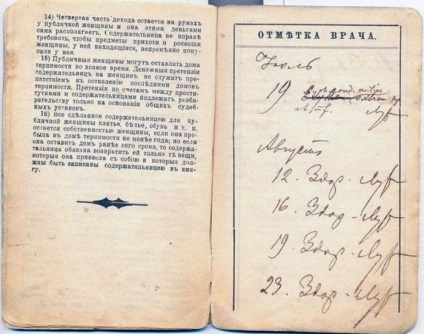 14) Четвертая часть дохода остается на руках
у публичной женщины и она этими деньгами
сама располагаетъ. Содержательница не вправе
требовать, чтобы предметы прихоти и роскоши
женщины, у ней находящiяся, непременно поку-
пали у ней.
15) Публичныя женщины могутъ оставить домъ
терпимости во всякое время. Денежныя претензiи
содержательницъ на женщинъ не служатъ пре-
пятствiемъ къ оставленiю последними домовъ
терпимости. Претензiи по счетамъ между прости-
тутками и содержательницами подлежатъ разби-
рательству только на основанiи общихъ судеб-
ныхъ уставовъ.
16) Все сделанное содержательницею для пу-
бличной женщины платье, белье, обувь и т. п.
остается собственностью женщины, если она про-
была въ доме терпимости не менее года; но если
она оставитъ домъ ранее сего срока, то содержа-
тельница обязана возвратить ей только те вещи,
которыя она принесла съ собою и которыя дол-
жны быть записаны содержательницею въ кни-
гу.
ОТМѢТКА ВРАЧА.
Июль
19
Августъ
12. Здор.
16. Здор.
19. Здор.
23. Здор.